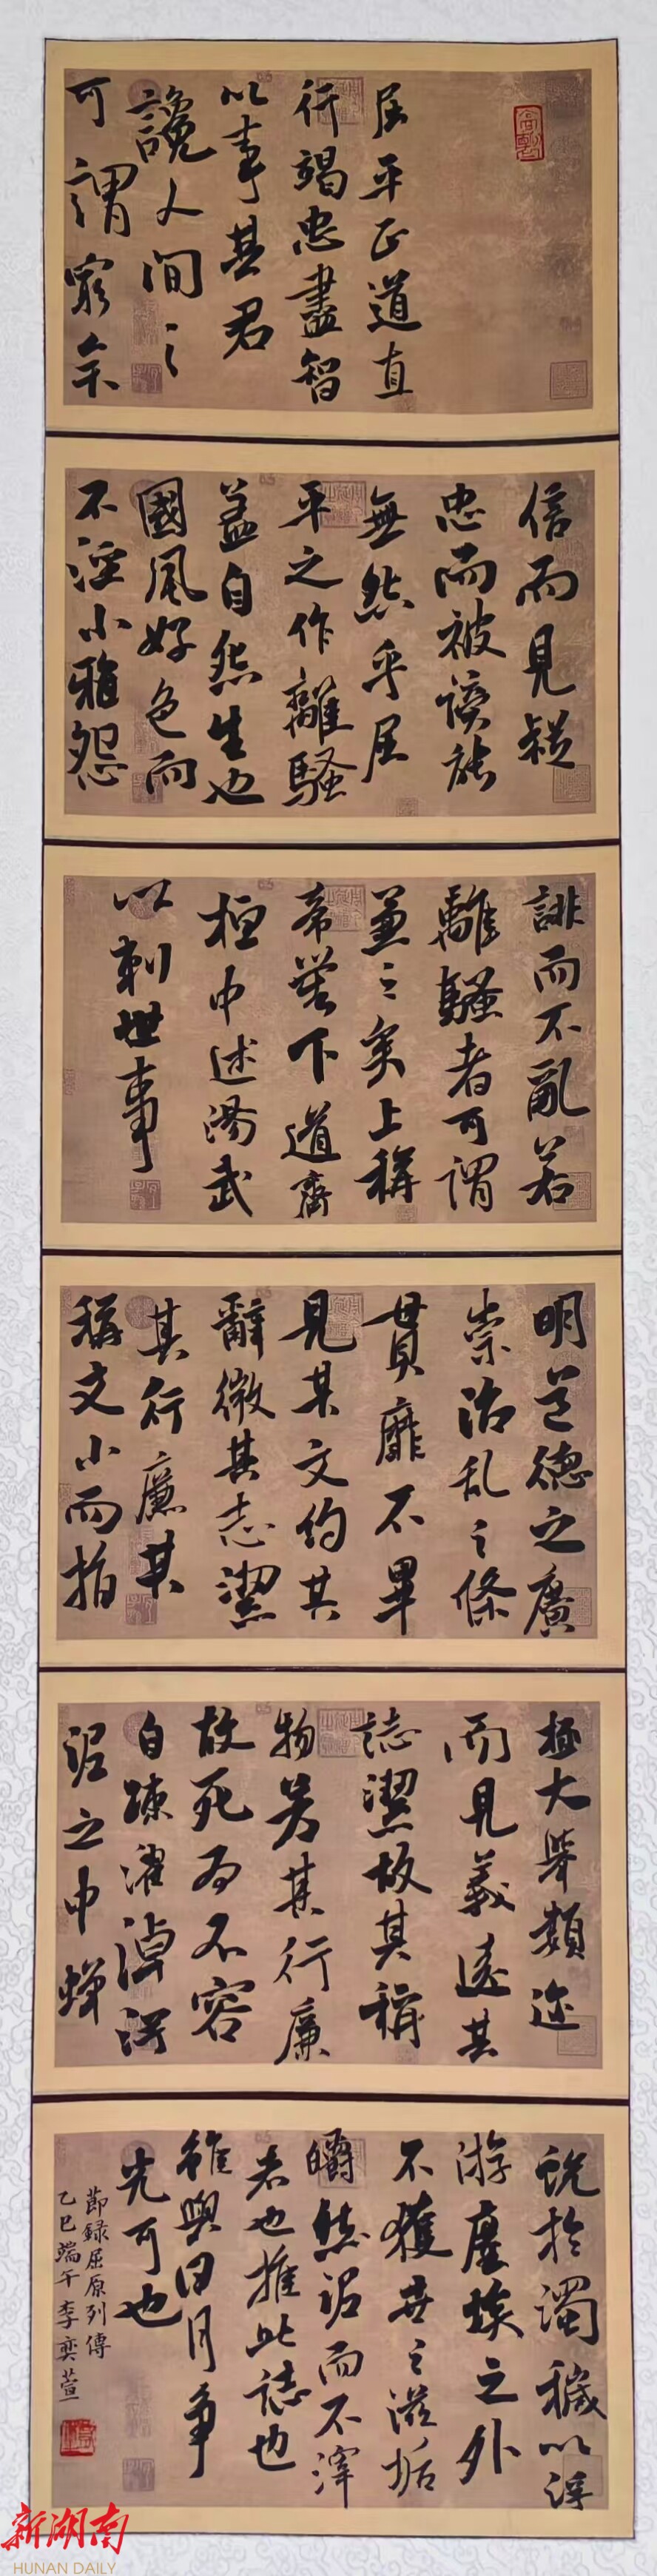 屈平正道直
行竭忠盡智
以事其君
讒人間之
可謂窮矣
信而見疑
忠而被謗能
無怨乎屈
平之作離騷
蓋自怨生也
國風好色而
不淫小雅怨
誹而不亂若
離騷者可謂
兼之矣上稱
帝嚳下道齊
桓中述湯武
以刺世事
明道德之廣
崇治乱之條
貫靡不畢
見其文約其
辭微其志潔
其行廉其
稱文小而指
極大舉類迩
而見義遠其
誌潔故其稱
物芳其行廉
故死而不容
自疎濯淖汙
泥之中蟬
蛻於濁穢以浮
游塵埃之外
不獲世之滋垢
皭然泥而不滓
者也推此誌也
雖與日月争
光可也
節録屈原列傳
乙巳端午李奕萱
新湖南
HUNAN DAILY